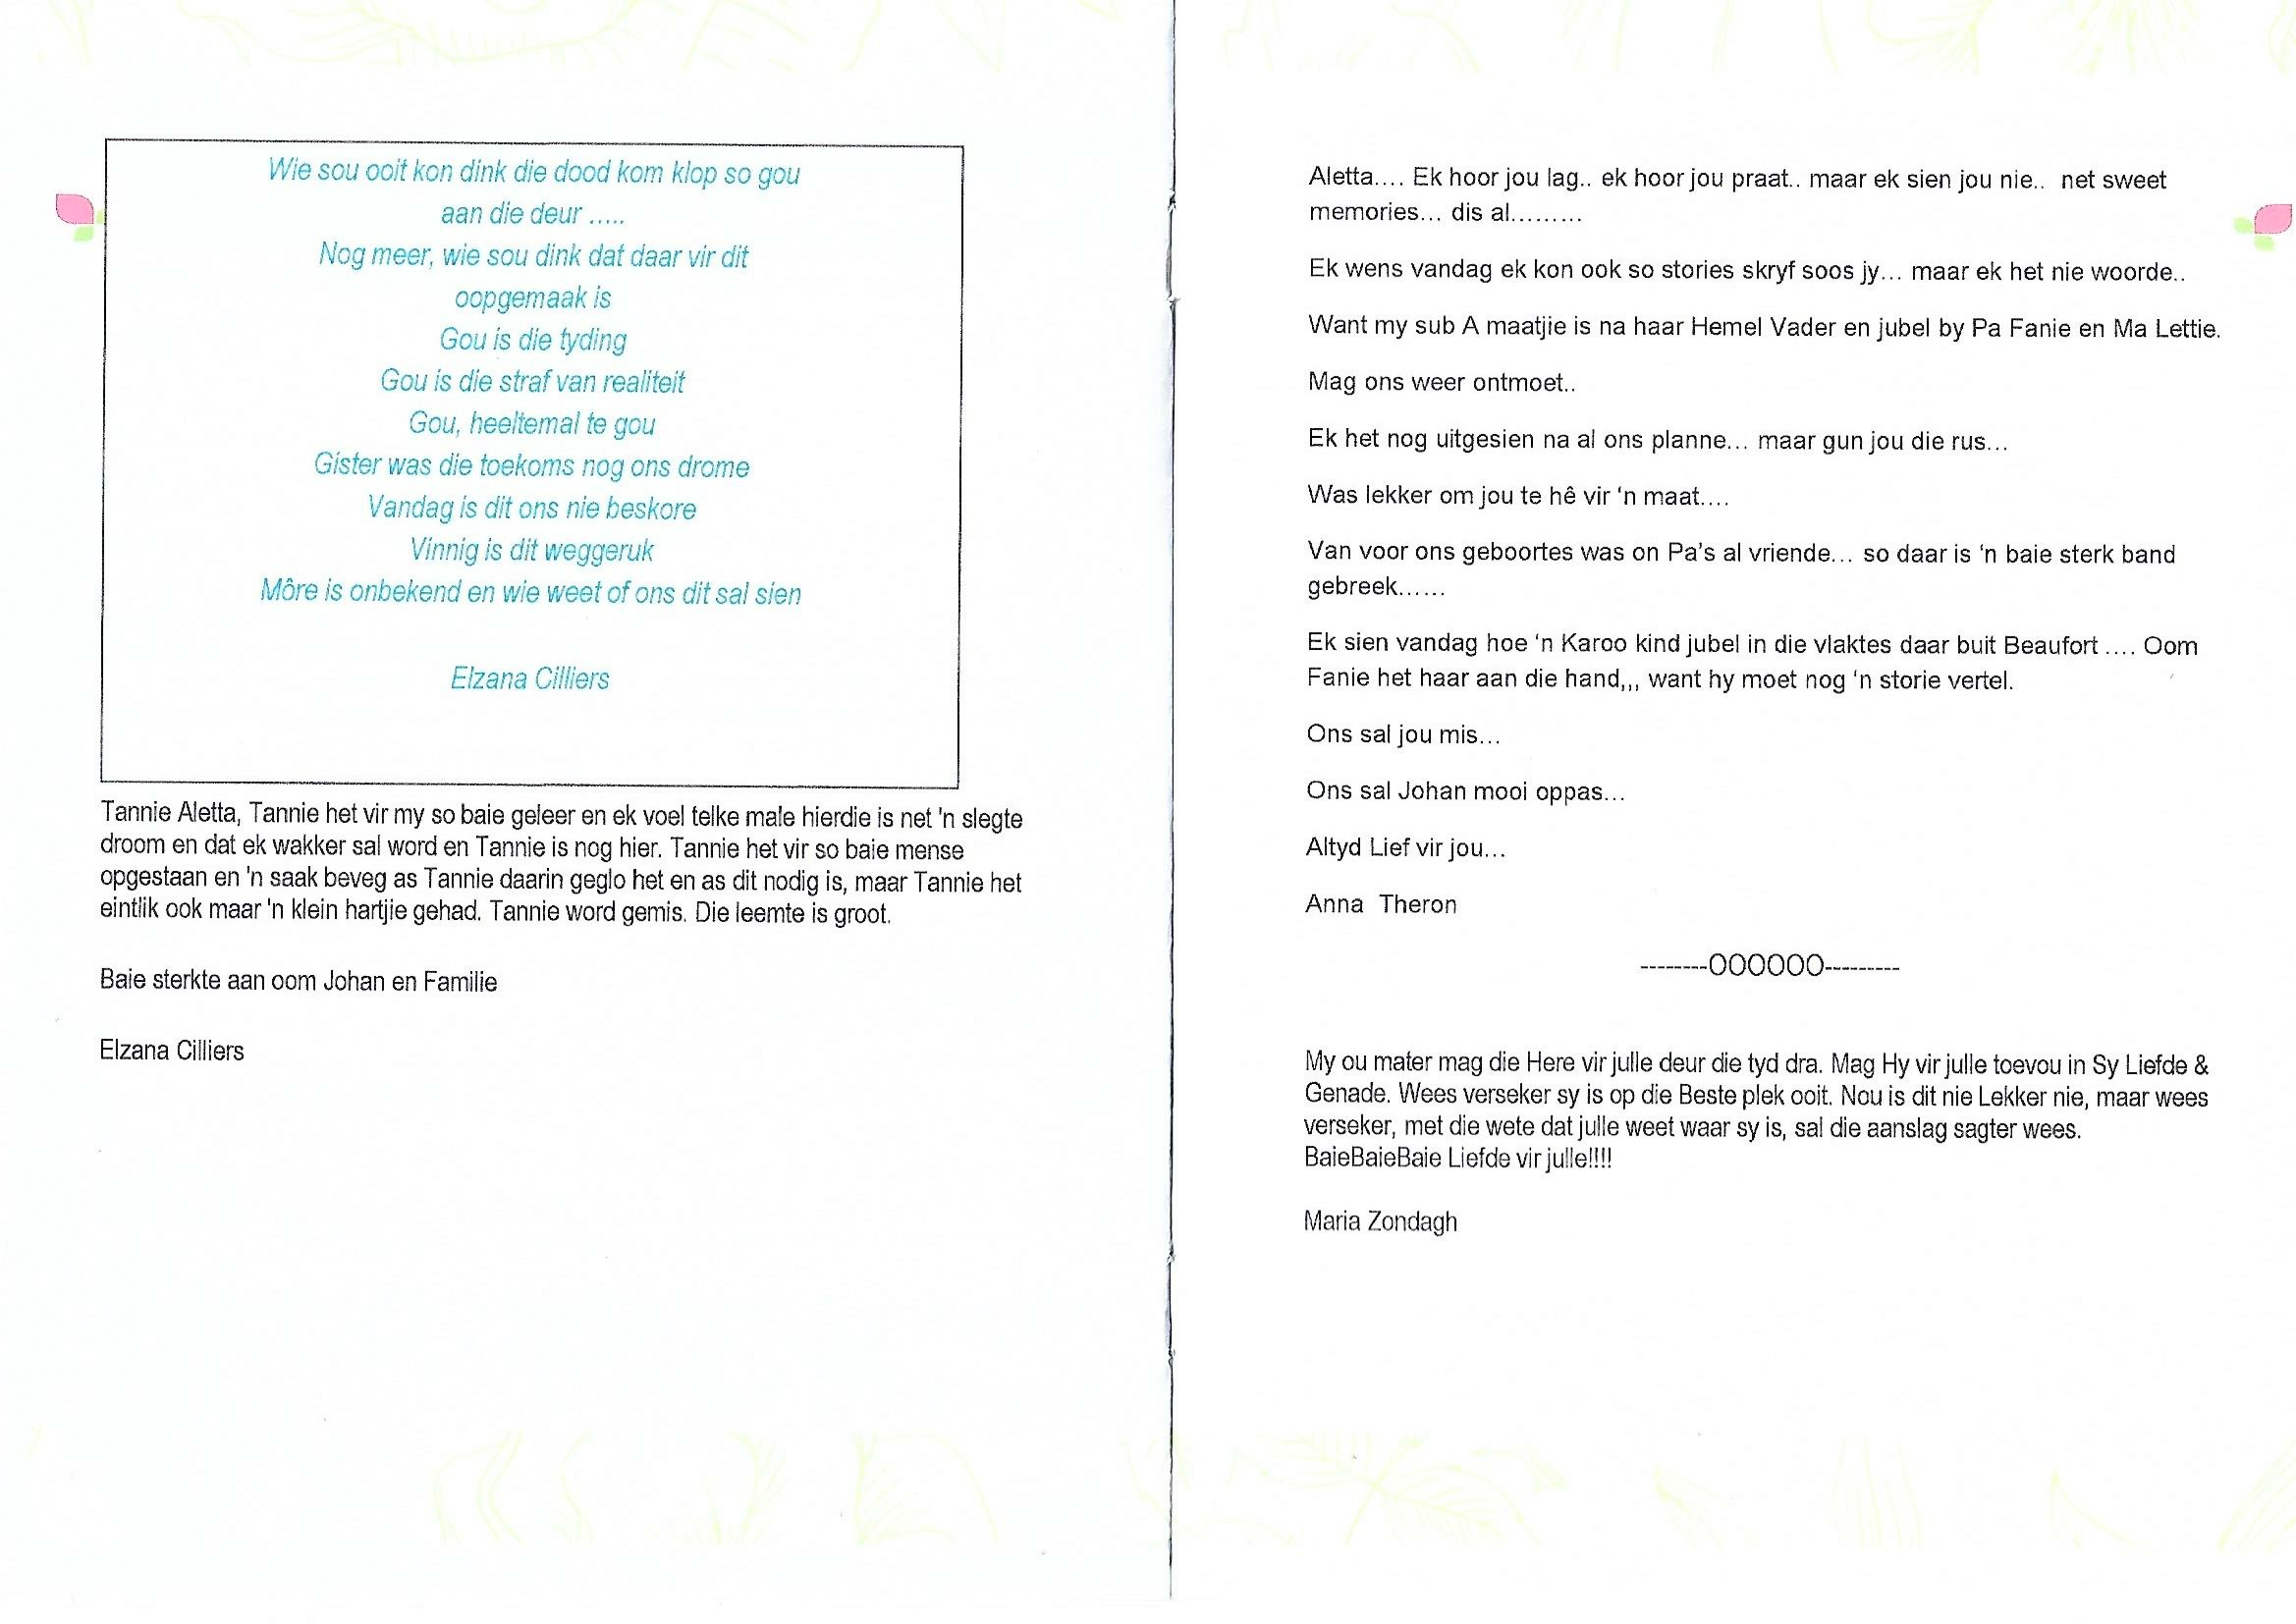 Wie sou ooit kon dink die dood kom klop so gou
aan die deur .....
Nog meer, wie sou dink dat daar vir dit
oopgemaak is
Gou is die tyding
Gou is die straf van realiteit
Gou, heeltemal te gou
Gister was die toekoms nog ons drome
Vandag is dit ons nie beskore
Vinnig is dit weggeruk
Môre is onbekend en wie weet of ons dit sal sien
Elzana Cilliers
Tannie Aletta, Tannie het vir my so baie geleer en ek voel telke male hierdie is net 'n slegte
droom en dat ek wakker sal word en Tannie is nog hier. Tannie het vir so baie mense
opgestaan en 'n saak beveg as Tannie daarin geglo het en as dit nodig is, maar Tannie het
eintlik ook maar 'n klein hartjie gehad. Tannie word gemis. Die leemte is groot.
Baie sterkte aan oom Johan en Familie
Elzana Cilliers
Aletta.... Ek hoor jou lag.. ek hoor jou praat.. maar ek sien jou nie.. net sweet
memories... dis al.........
Ek wens vandag ek kon ook so stories skryf soos jy... maar ek het nie woorde..
Want my sub A maatjie is na haar Hemel Vader en jubel by Pa Fanie en Ma Lettie.
Mag ons weer ontmoet..
Ek het nog uitgesien na al ons planne... maar gun jou die rus...
Was lekker om jou te hê vir ‘n maat....
Van voor ons geboortes was on Pa’s al vriende... so daar is ‘n baie sterk band
gebreek......
Ek sien vandag hoe ‘n Karoo kind jubel in die vlaktes daar buit Beaufort .... Oom
Fanie het haar aan die hand,,, want hy moet nog ‘n storie vertel.
Ons sal jou mis...
Ons sal Johan mooi oppas...
Altyd Lief vir jou...
Anna Theron
--------OOOOOO---------
My ou mater mag die Here vir julle deur die tyd dra. Mag Hy vir julle toevou in Sy Liefde &
Genade. Wees verseker sy is op die Beste plek ooit. Nou is dit nie Lekker nie, maar wees
verseker, met die wete dat julle weet waar sy is, sal die aanslag sagter wees.
BaieBaieBaie Liefde vir julle!!!!
Maria Zondagh